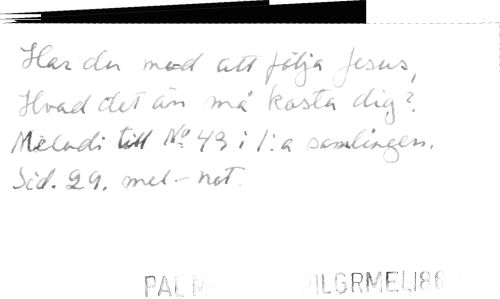 Har du mod att följa Jesus,
Hvad det än må kosta dig?
Melodi till No 43 i 1:a samlingen.
Sid. 29. mel-not.
PALM PILGRMEL186